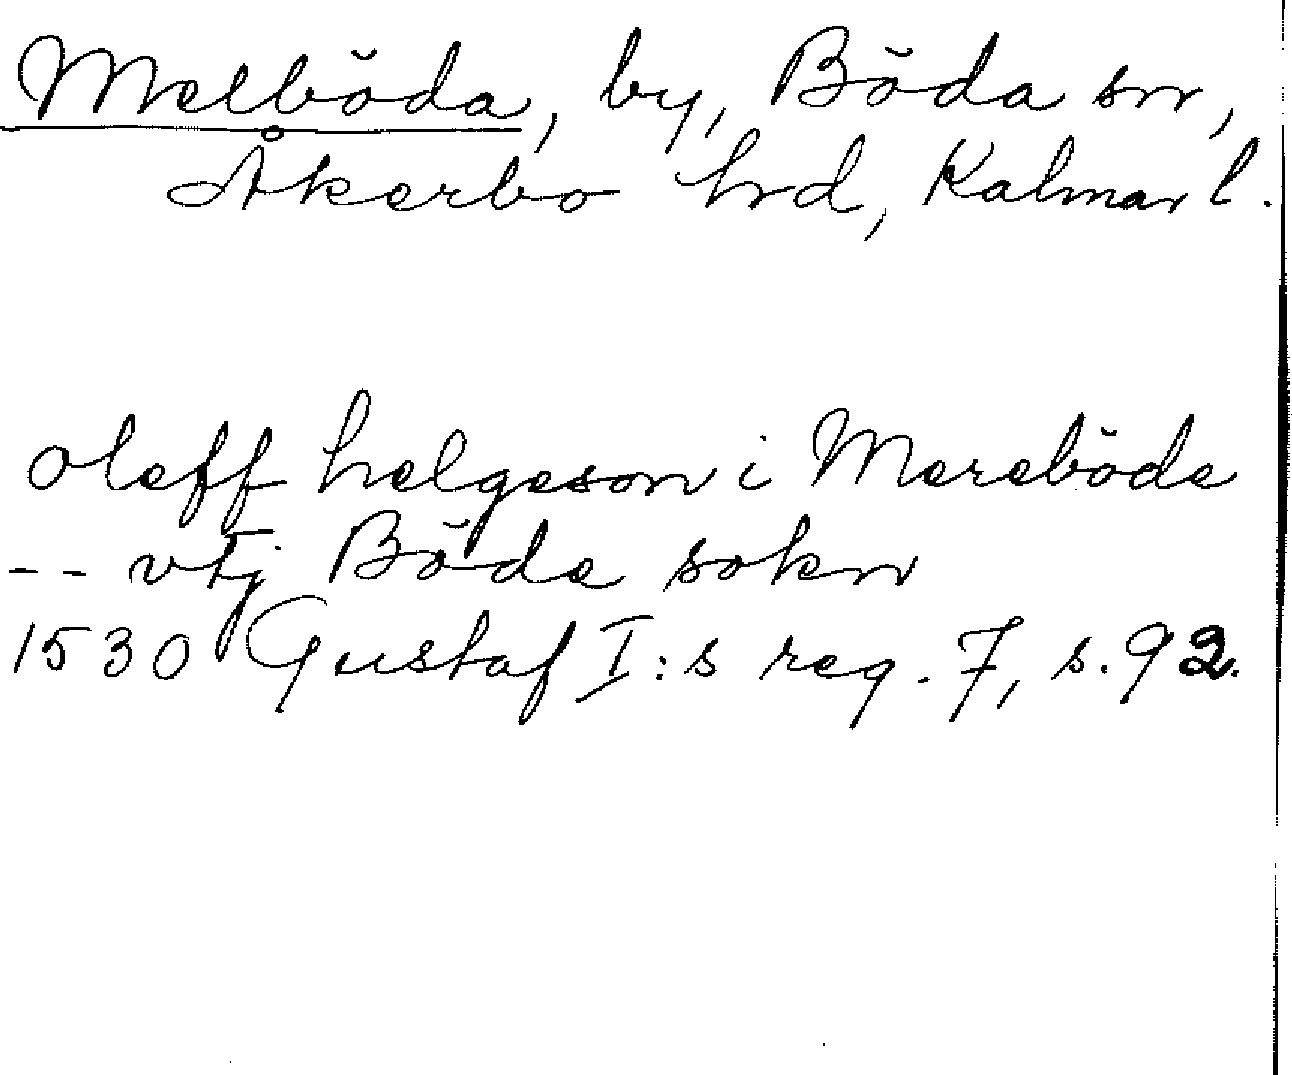 Melböda, by, Böda sn,
Åkerbo hrd, Kalmar l.
oleff helgeson i Mereböde
-- vtj Böde sokn
1530 Gustaf I:s reg. 7, s. 92.